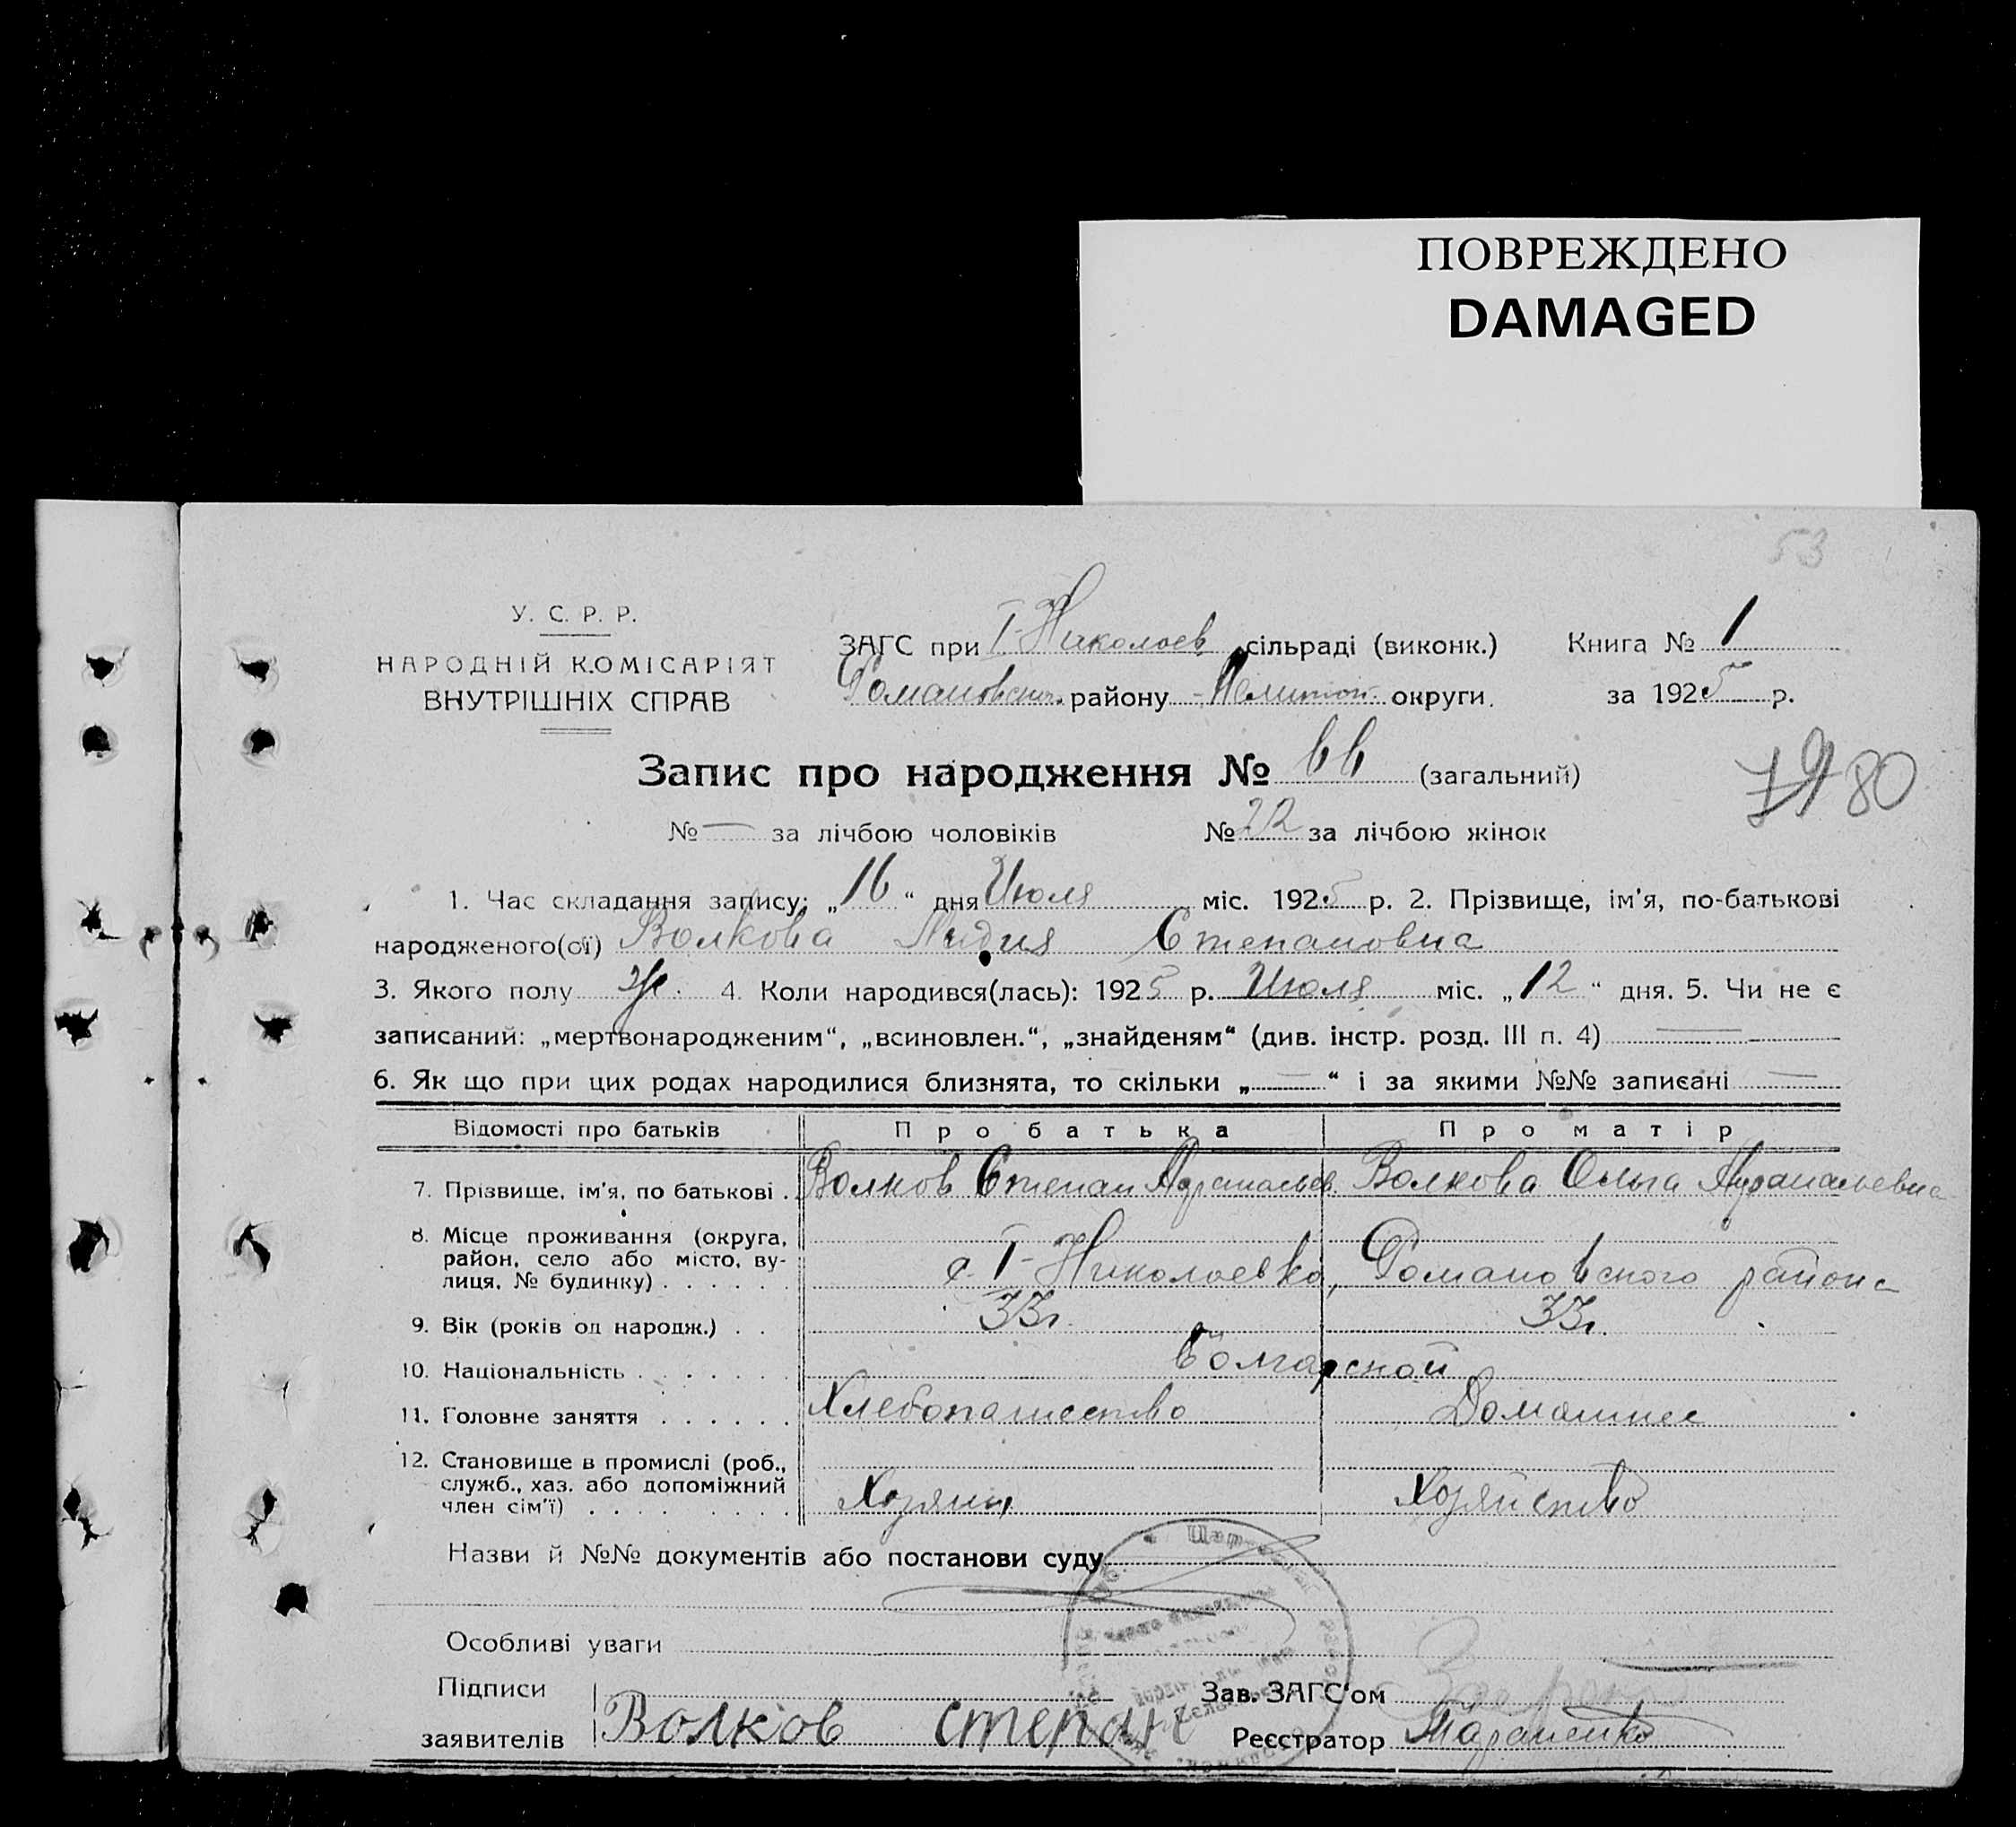 ПОВРЕЖДЕНО
DAMAGED
53
У. С. Р. Р.
НАРОДНІЙ КОМІСАРІЯТ
ВНУТРІШНІХ СПРАВ
ЗАГС при I-Николаев. сільраді (виконк.) Книга № 1
Романовск. району округи. за 1925 р.
Запис про народження № 66 (загальний)
79 80
№ — за лічбою чоловіків № 22 за лічбою жінок
1. Час складання запису: „16“ дня Июля міс. 1925 р. 2. Прізвище, ім'я, по-батькові
народженого(ої) Волкова Лидия Степановна
3. Якого полу ж. 4. Коли народився(лась): 1925 р. Июля міс. „12“ дня. 5. Чи не є
записаний: „мертвонародженим“, „всиновлен.“, „знайденям“ (див. інстр. розд. III п. 4) —
6. Як що при цих родах народилися близнята, то скільки „—“ і за якими №№ записані —
Відомості про батьків Про батька Про матір
7. Прізвище, ім'я, по батькові . Волков Степан Волкова Ольга
8. Місце проживання (округа,
район, село або місто, ву-
лиця, № будинку) . . . . . с. I-Николаевка, Романовского района
9. Вік (років од народж.) . . 33 г. 33 г.
10. Національність . . . . . . . Болгарской
11. Головне заняття . . . . . . Хлебопашество Домашнее
12. Становище в промислі (роб.,
служб., хаз. або допоміжний
член сім'ї) . . . . . . . . Хозяин Хозяйство
Назви й №№ документів або постанови суду
Особливі уваги
Підписи Зав. ЗАГС'ом
заявителів Волков Степан Реєстратор